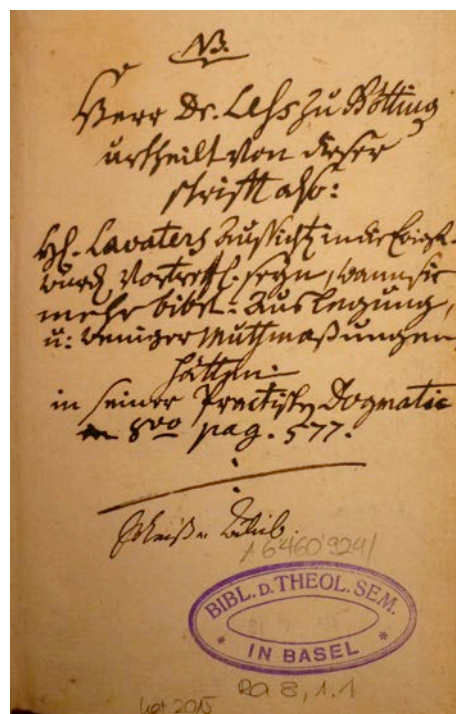 NB.
Herr Dr. Leß zu Götting
urtheilt von dieser
schrifft also:
H. Lavaters Aussicht in die Ewigk.
würd. Vortreffl. seyn, wann sie
mehr bibel: Auslegung,
u: weniger Muthmaßungen
hätten.
in seiner Practisch. Dogmatic
8vo pag. 577.
A 6'460'924/
BIBL. D. THEOL. SEM.
* IN BASEL *
Ra 3, 1.1
kat 2015